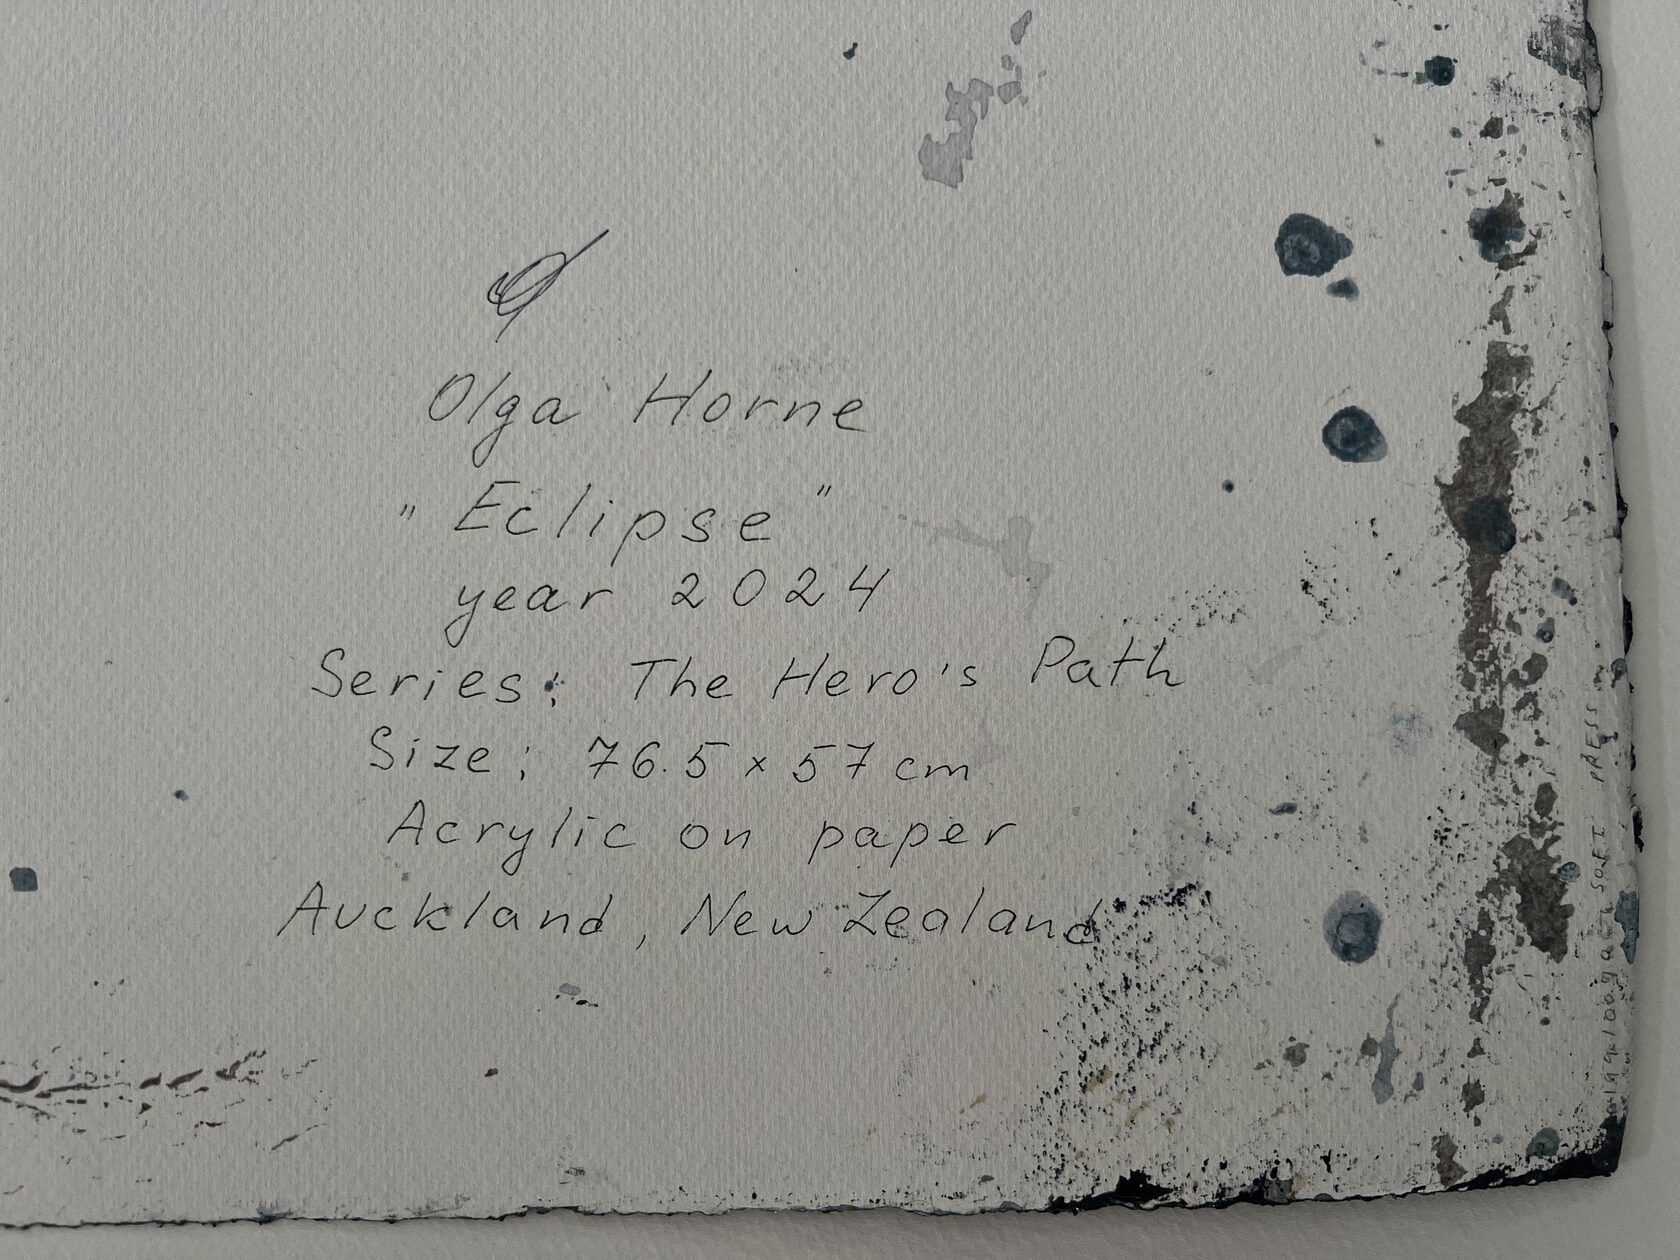 Olga Horne
"Eclipse"
year 2024
Series: The Hero's Path
Size: 76.5 x 57 cm
Acrylic on paper
Auckland, New Zealand
SOFT PRESS